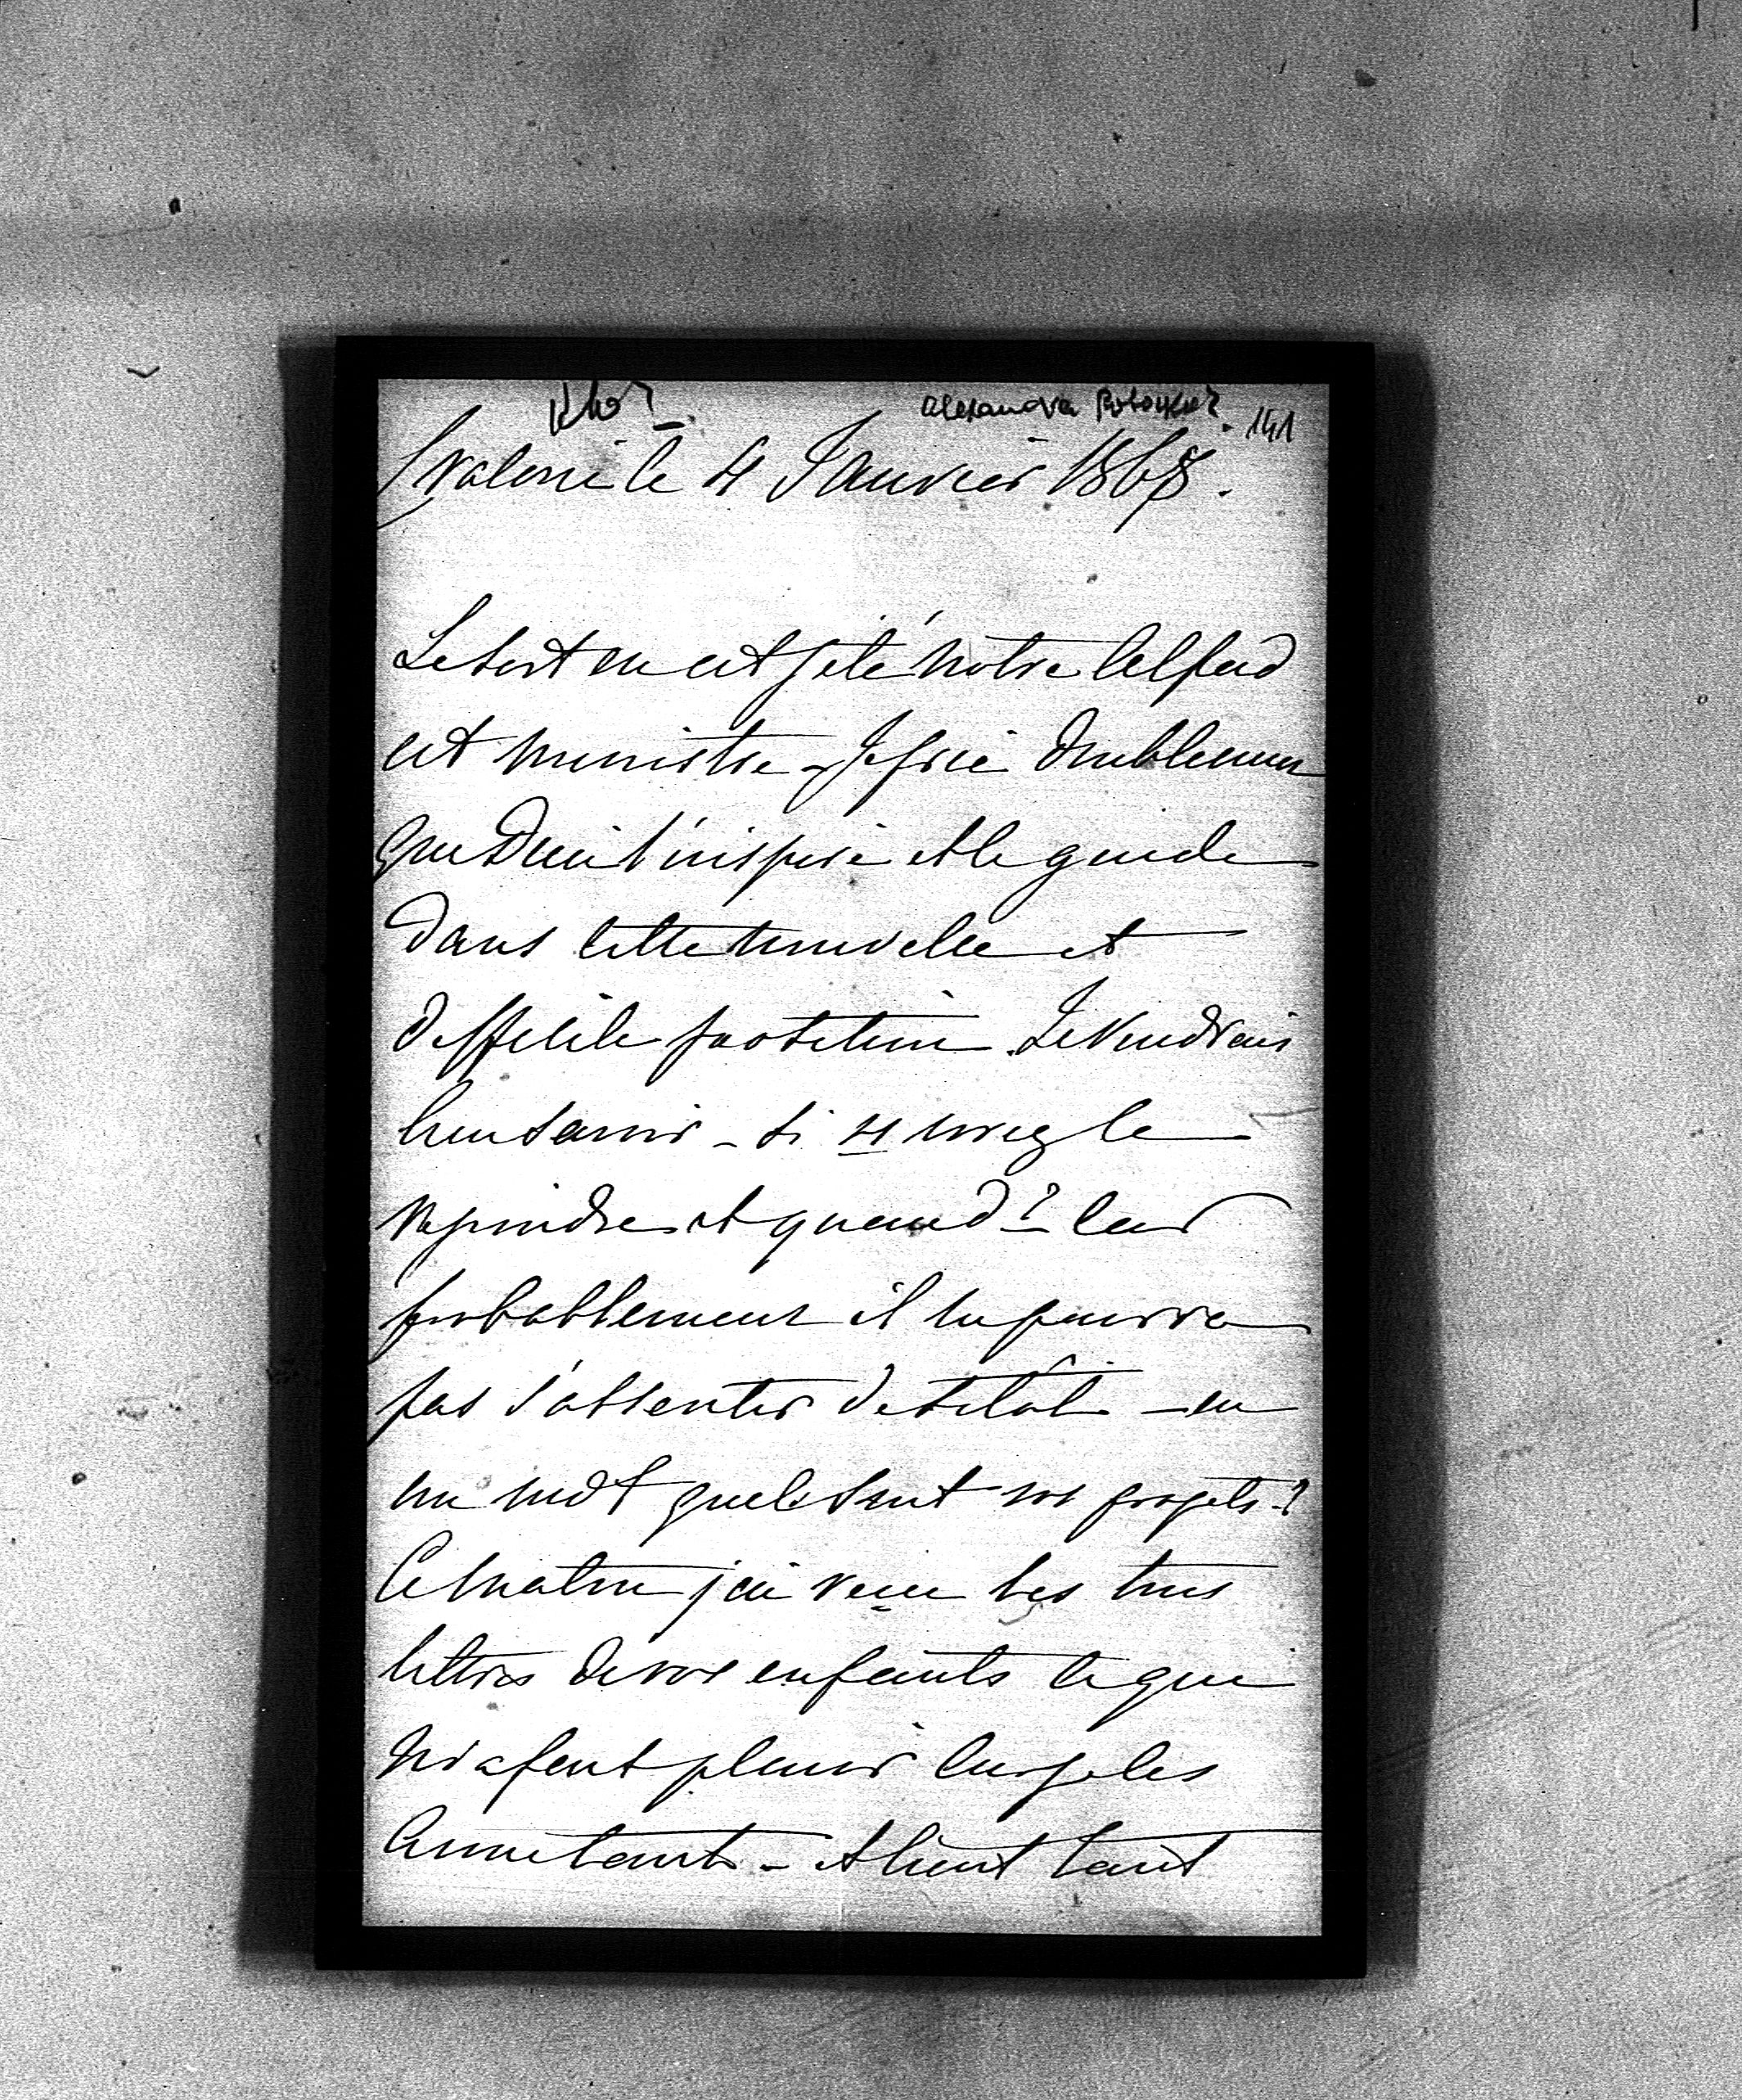 Kto?
Alexandra Potocka?
141
le 4 Janvier 1868.
Le sort en est jeté notre Alfred
est ministre - Je prie doublement
que Dieu l'inspire et le guide
dans cette nouvelle et
difficile position. Je voudrais
bien savoir - si vous irez le
rejoindre et quand? - car
probablement il ne pourra
pas s'absenter de sitôt - en
un mot quels sont vos projets - ?
Ce matin j'ai reçu les trois
lettres de vos enfants ce qui
m'a fait plaisir car je les
aime tant - et tient tant